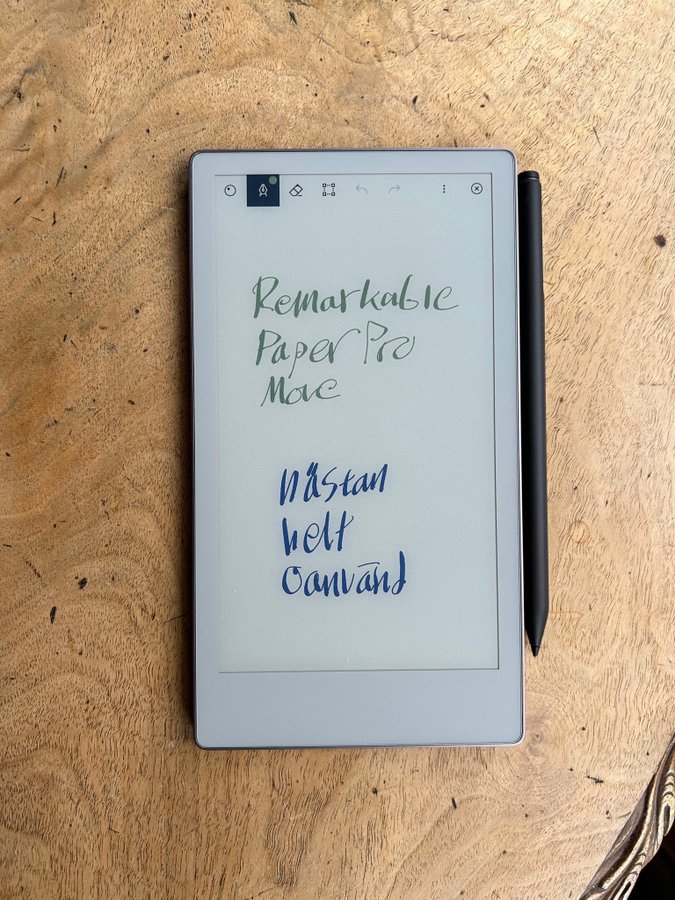 Remarkable
Paper Pro
Move
Nästan
helt
oanvänd